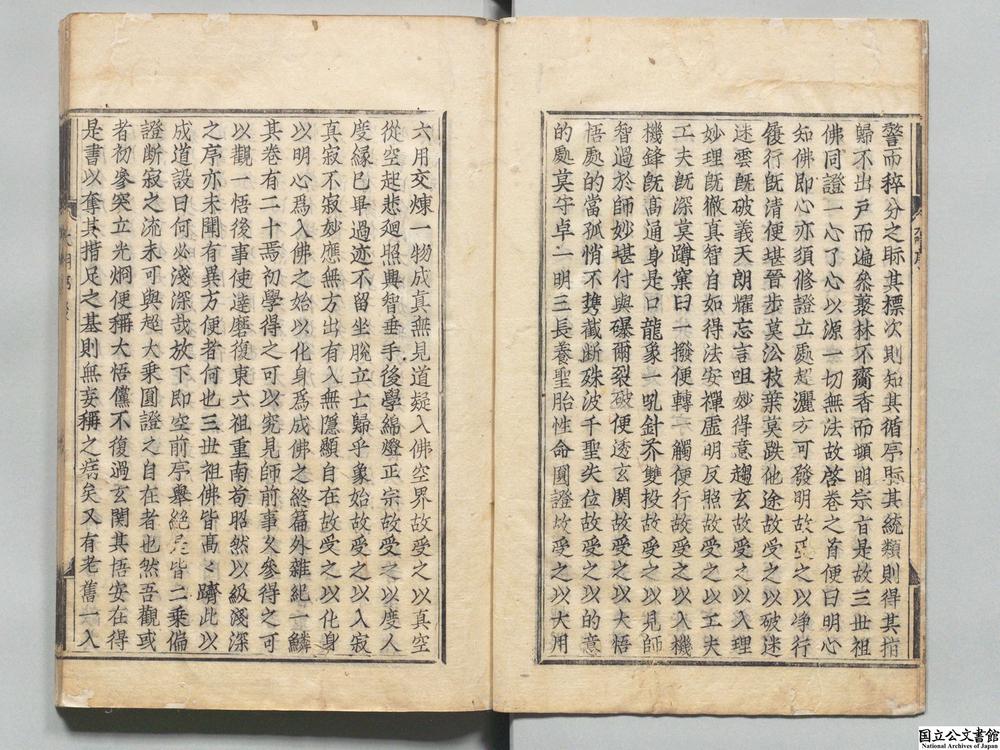 警而稡分之眎其標次則知其循序眎其統類則得其指
歸不出戸而遍叅藂林不齎香而頓明宗旨是故三丗祖
佛同證一心了心以源一切無法故啓卷之首便曰明心
知佛即心亦須修證立處超灑方可發明故受之以净行
履行旣清便堪晉步莫㳂枝葉莫跌他途故受之以破迷
迷雲旣破義天朗耀忘言咀妙得意趨玄故受之以入理
妙理旣徹真智自如得法安禪虛明反照故受之以工夫
工夫旣深莫蹲窠臼一撥便轉一觸便行故受之以入機
機鋒旣高通身是口龍象一吼針芥雙投故受之以見師
智過於師妙堪付與㬥爾裂破便透玄関故受之以大悟
悟處的當孤悄不携截断殊波千聖失位故受之以的意
的處莫守卓二明三長養聖胎性命圓證故受之以大用
六用交煉一物成真無見道疑入佛空界故受之以真空
從空起悲廻照興智垂手後學綿燈正宗故受之以度人
度縁已畢過迹不留坐脫立亡歸乎象始故受之以入寂
真寂不寂妙應無方出有入無隱顯自在故受之以化身
以明心爲入佛之始以化身爲成佛之終篇外雜紀一鱗
其卷有二十焉初學得之可以究見師前事久參得之可
以觀一悟後事使達磨復東六祖重南苟昭然以級淺深
之序亦未聞有異方便者何也三丗祖佛皆高〻躋此以
成道設曰何必淺深哉放下即空前序舉絕是皆二乗偏
證断寂之流未可與超大乗圓證之自在者也然吾觀或
者初參突立光烱便稱大悟儻不復過玄関其悟安在得
是書以奪其措足之基則無妄稱之痞矣又有老舊一入
国立公文書館
National Archives of Japan